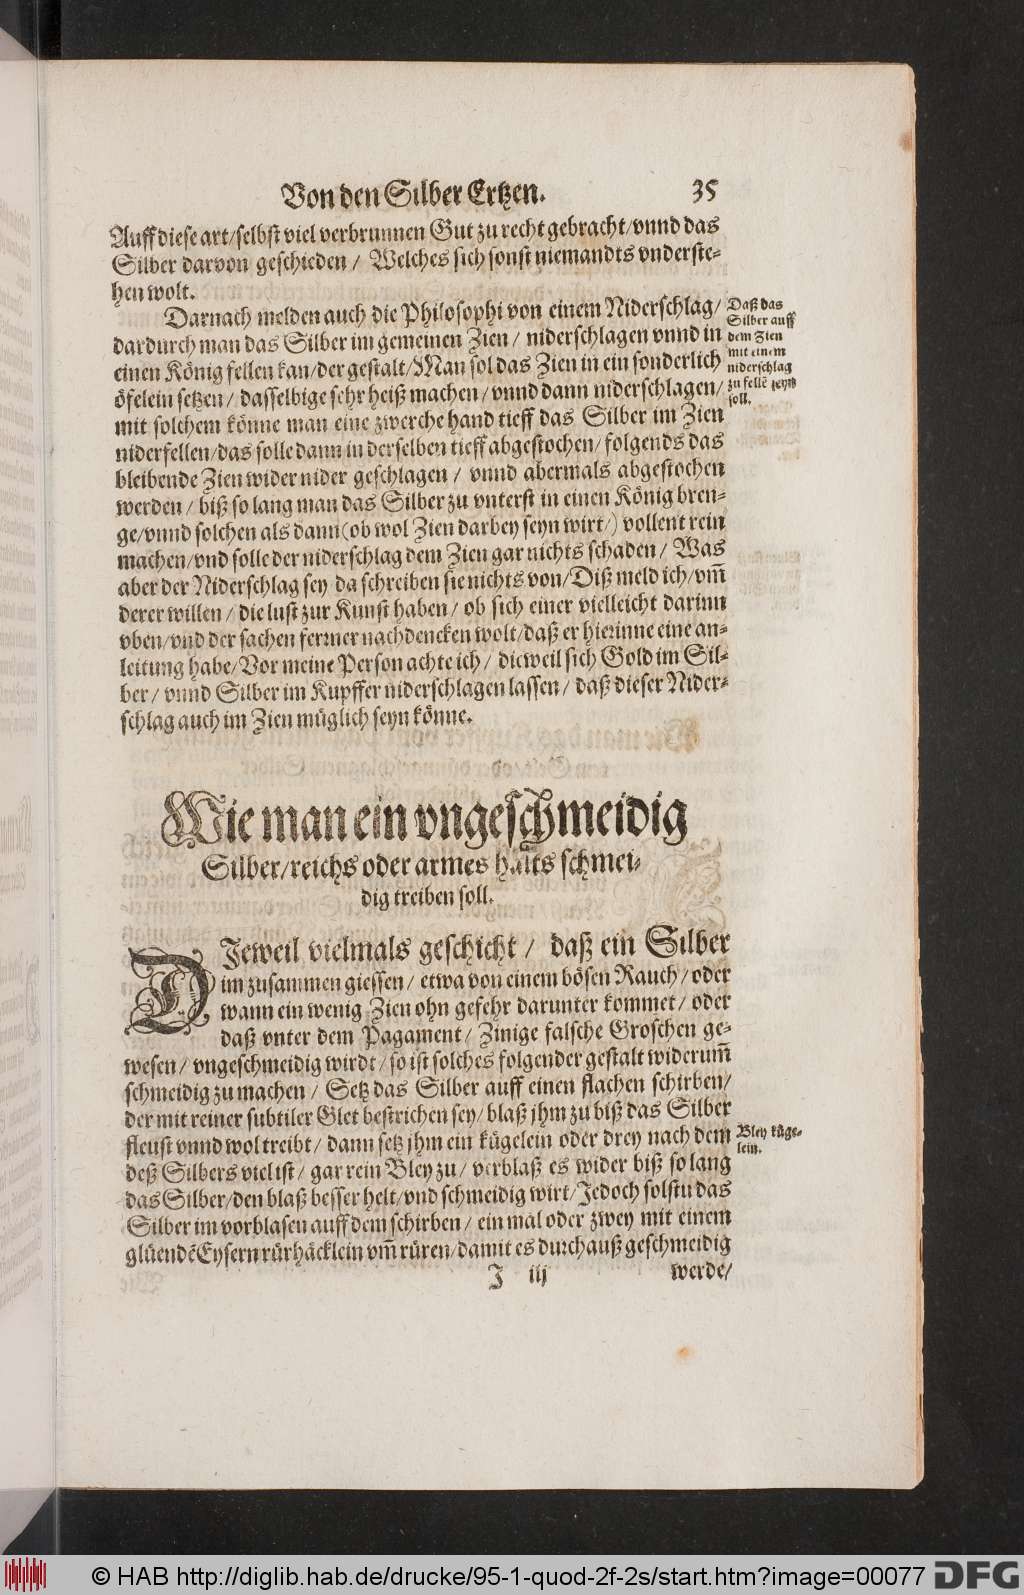 Von den Silber Ertzen. 35
Auff diese art/selbst viel verbrunnen Gut zu recht gebracht/vnnd das
Silber darvon geschieden / Welches sich sonst niemandts vnderste-
hen wolt.
Darnach melden auch die Philosophi von einem Niderschlag/
dardurch man das Silber im gemeinen Zien / niderschlagen vnnd in
einen König fellen kan/der gestalt/Man sol das Zien in ein sonderlich
öfelein setzen / dasselbige sehr heiß machen / vnnd dann niderschlagen/
mit solchem könne man eine zwerche hand tieff das Silber im Zien
niderfellen/das solle dann in derselben tieff abgestochen/folgends das
bleibende Zien wider nider geschlagen / vnnd abermals abgestochen
werden / biß so lang man das Silber zu vnterst in einen König bren-
ge/vnnd solchen als dann (ob wol Zien darbey seyn wirt/) vollent rein
machen/vnd solle der niderschlag dem Zien gar nichts schaden / Was
aber der Niderschlag sey da schreiben sie nichts von/Diß meld ich/vm̄
derer willen / die lust zur Kunst haben / ob sich einer vielleicht darinn
vben/vnd der sachen ferrner nachdencken wolt/daß er hierinne eine an-
leitung habe/Vor meine Person achte ich / dieweil sich Gold im Sil-
ber / vnnd Silber im Kupffer niderschlagen lassen / daß dieser Nider-
schlag auch im Zien müglich seyn könne.
Daß das
Silber auff
dem Zien
mit einem
niderschlag
zu fellē seyn
soll.
Wie man ein vngeschmeidig
Silber/reichs oder armes halts schmei-
dig treiben soll.
DJeweil vielmals geschicht / daß ein Silber
im zusammen giessen / etwa von einem bösen Rauch / oder
wann ein wenig Zien ohn gefehr darunter kommet / oder
daß vnter dem Pagament / Zinige falsche Groschen ge-
wesen / vngeschmeidig wirdt / so ist solches folgender gestalt widerum̄
schmeidig zu machen / Setz das Silber auff einen flachen schirben/
der mit reiner subtiler Glet bestrichen sey/blaß jhm zu biß das Silber
fleust vnnd wol treibt / dann setz jhm ein kügelein oder drey nach dem
deß Silbers viel ist / gar rein Bley zu / verblaß es wider biß so lang
das Silber/den blaß besser helt/vnd schmeidig wirt/Jedoch solstu das
Silber im vorblasen auff dem schirben / ein mal oder zwey mit einem
glüendē Eysern rürhäcklein vm̄ rüren/damit es durchauß geschmeidig
Bley küge-
lein.
J iij werde/
© HAB http://diglib.hab.de/drucke/95-1-quod-2f-2s/start.htm?image=00077 DFG